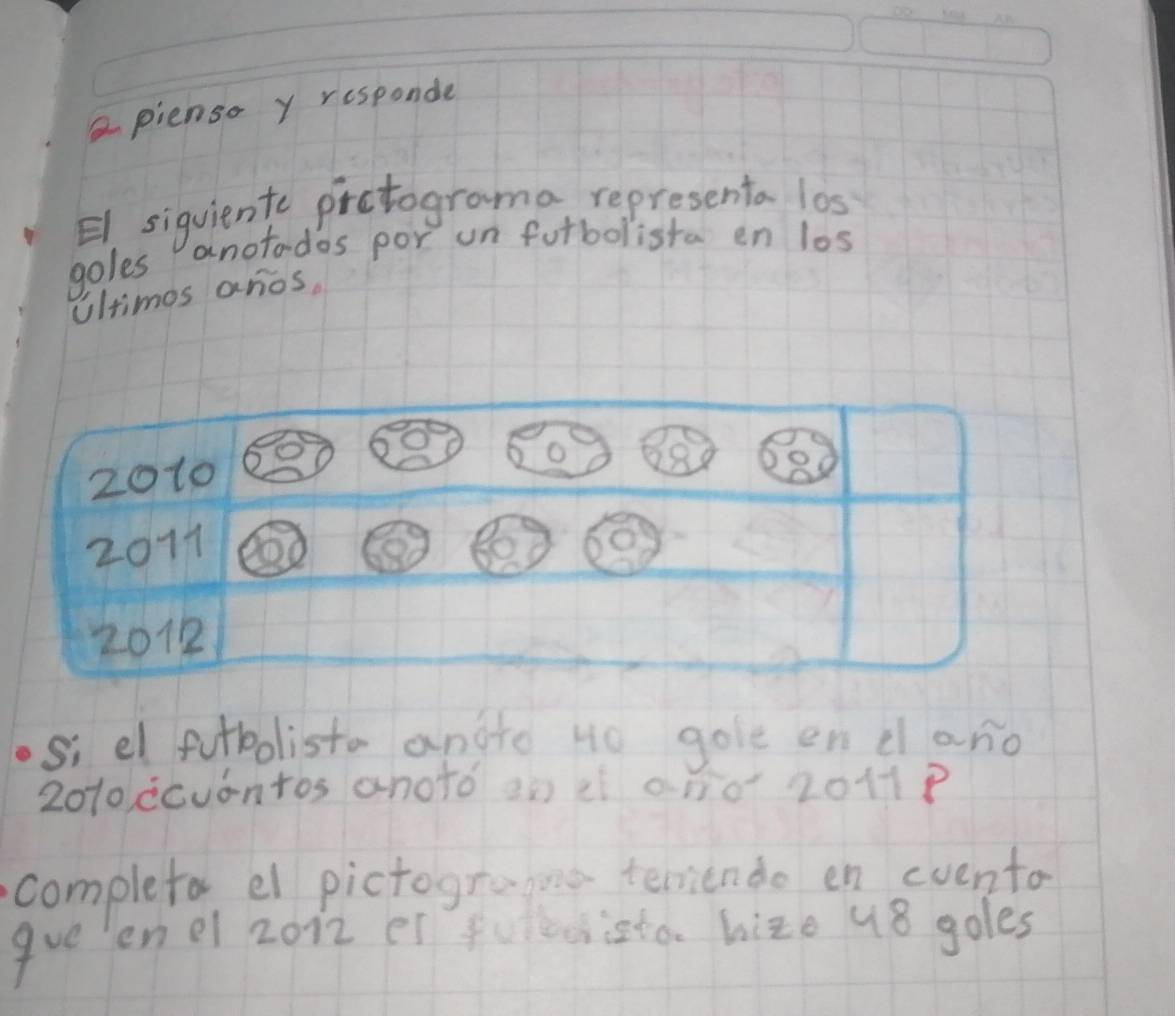 2 pienso y responde
El siguiente pictograma representa los
goles anotados por un futbolista en los
últimos años.
2010
2011
2012
• Si el futbolista anóto 40 gole en el año
2010 ¿cuántos anotó en el año 2011?
• completa el pictograma teniendo en cuenta
que en el 2012 el futbolista hizo 48 goles